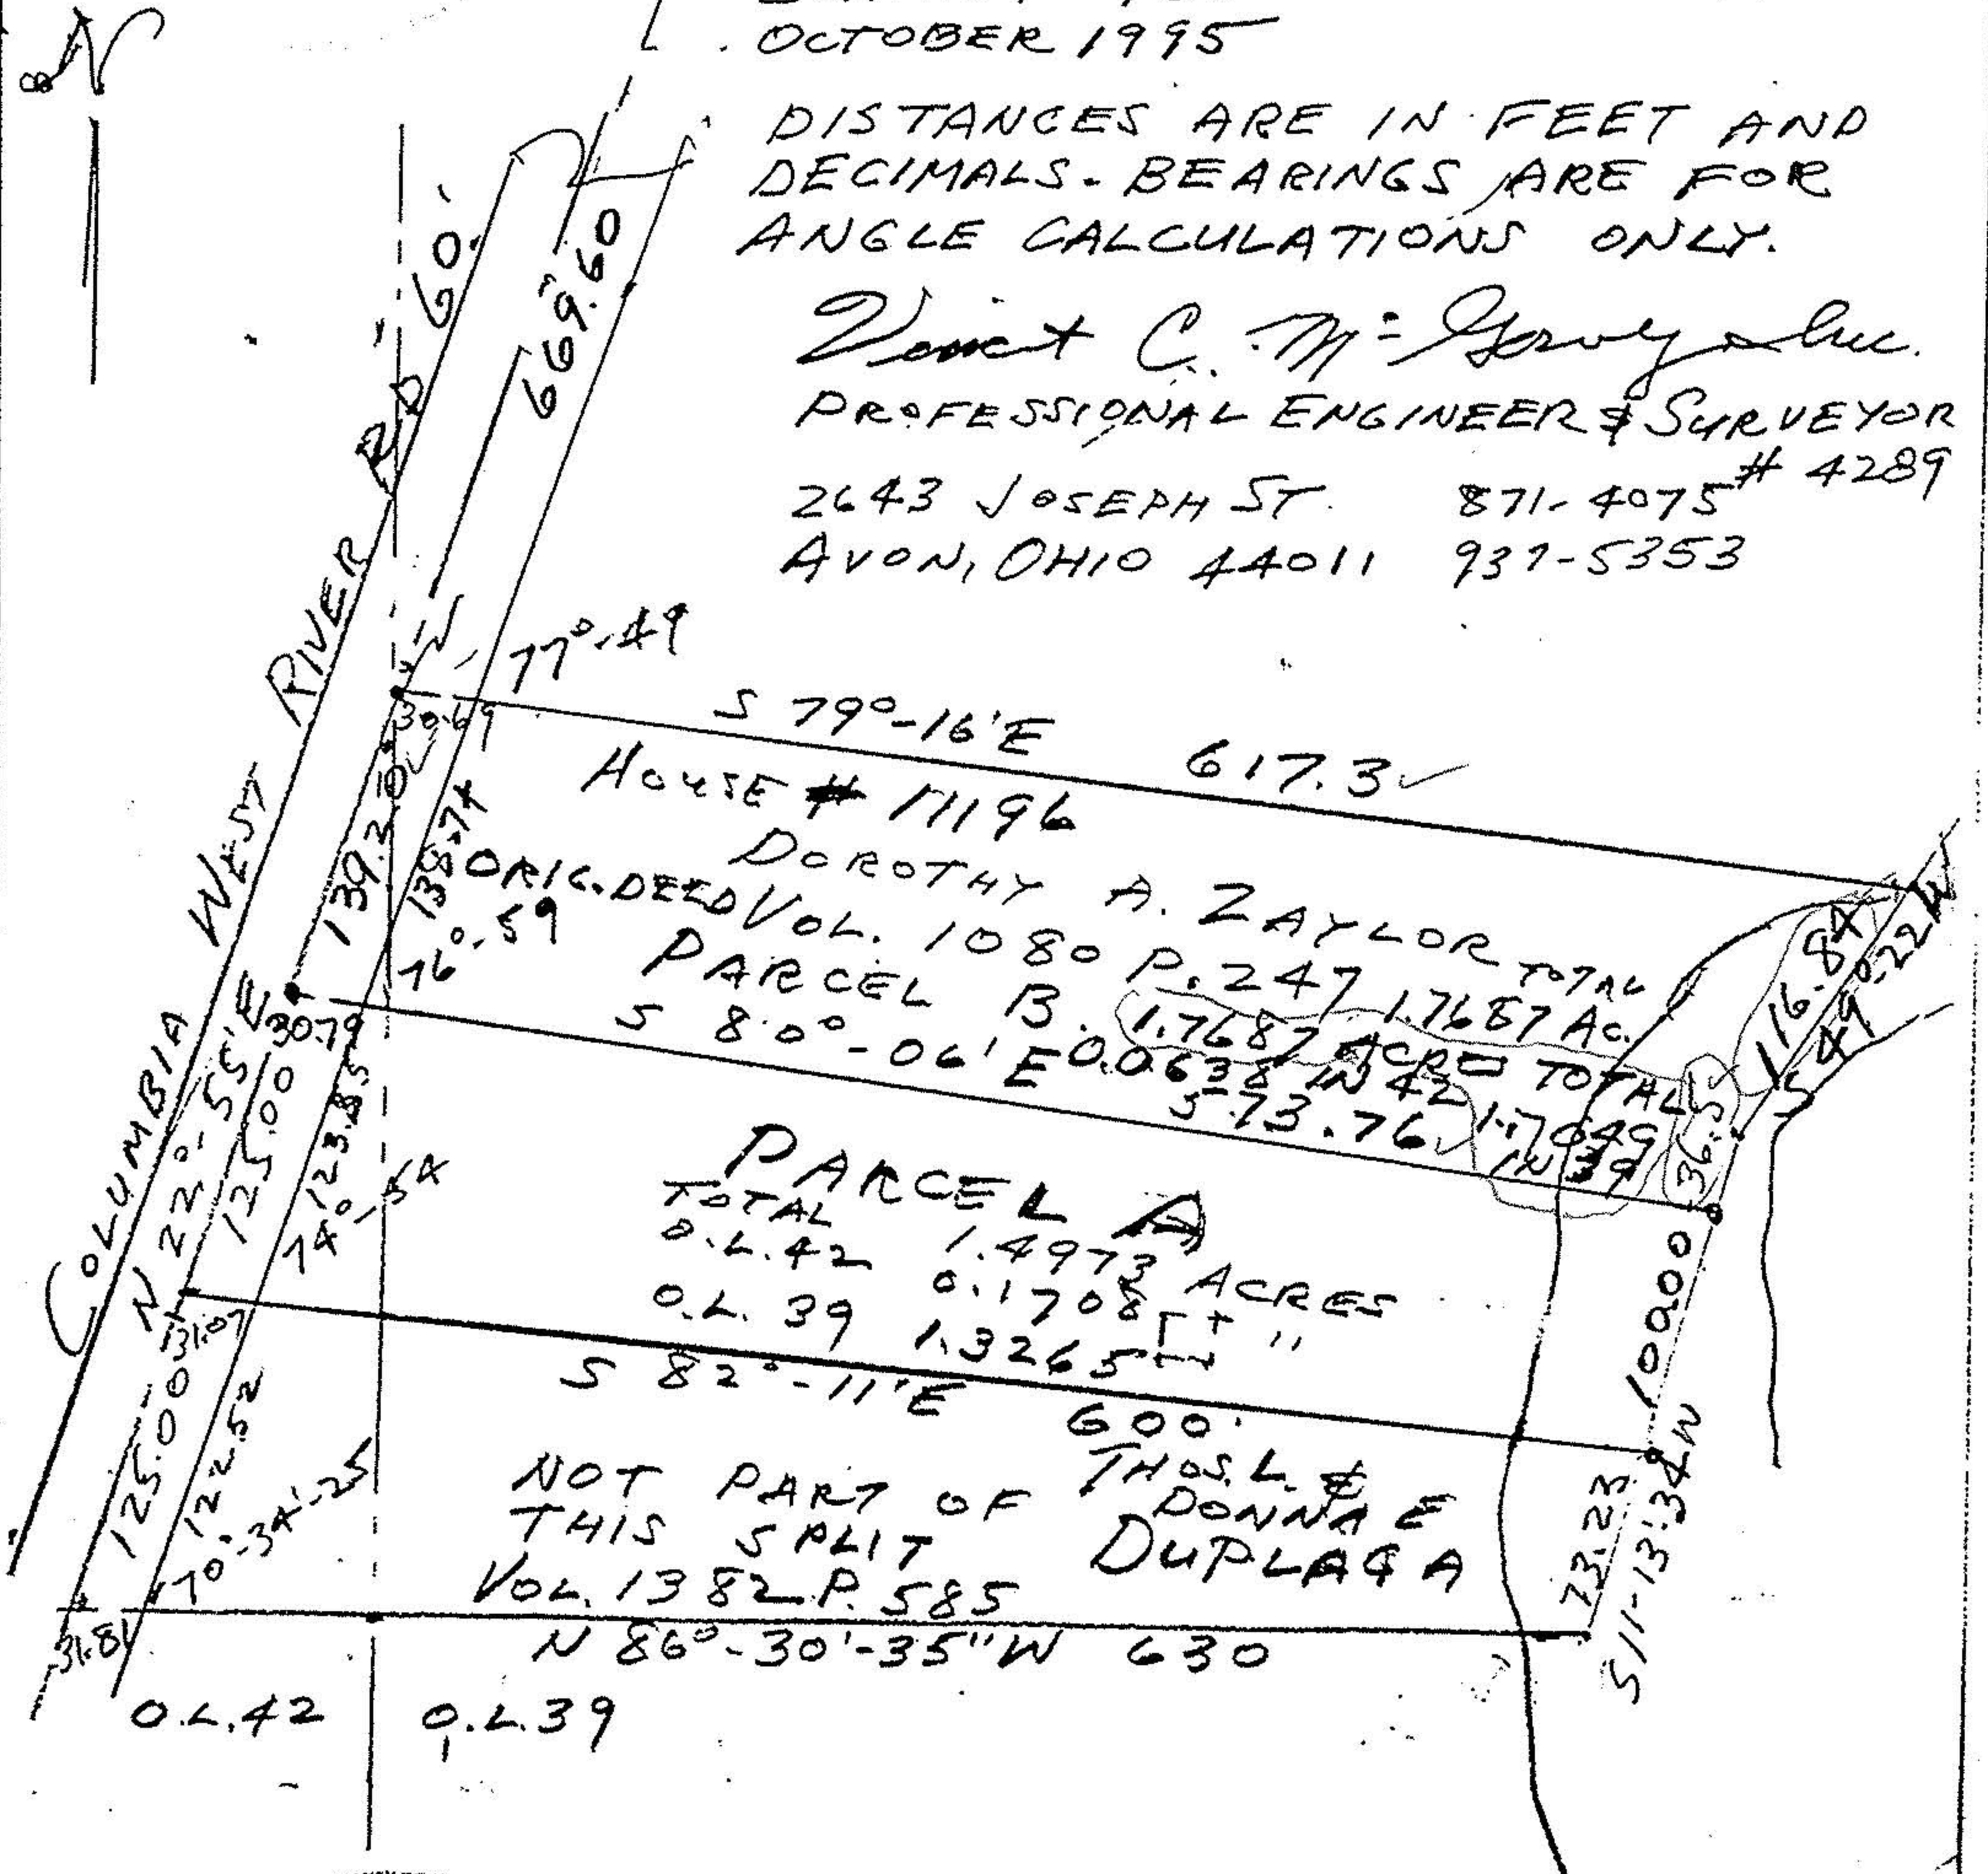 N
OCTOBER 1995
DISTANCES ARE IN FEET AND
DECIMALS. BEARINGS ARE FOR
ANGLE CALCULATIONS ONLY.
PROFESSIONAL ENGINEER & SURVEYOR
# 4289
2643 JOSEPH ST. 871-4075
AVON, OHIO 44011 937-5353
COLUMBIA WEST RIVER RD 60'
669.60
77°-49
S 79°-16'E 617.3
30.69
HOUSE # 11196
DOROTHY A. ZAYLOR
ORIG. DEED VOL. 1080 P. 247
TOTAL
1.7687 AC.
PARCEL B. 1.7687 ACRE TOTAL
0.0638 IN 42
1.7049
IN 39
139.20
138.74
76°-59
116.84
S 49°-22 W
36.5
S 80°-06'E 573.76
30.79
N 22°-55'E
125.00
123.85
74°-54
PARCEL A
TOTAL 1.4973 ACRES
O.L. 42 0.1708 "
O.L. 39 1.3265 "
100.00
31.07
S 82°-11'E 600'
125.00
122.52
70°-34'-25
NOT PART OF
THIS SPLIT
VOL. 1382 P. 585
THOS. L. &
DONNA E
DUPLAGA
73.23
S 11-13'-34 W
31.81
N 86°-30'-35" W 630
O.L. 42
O.L. 39